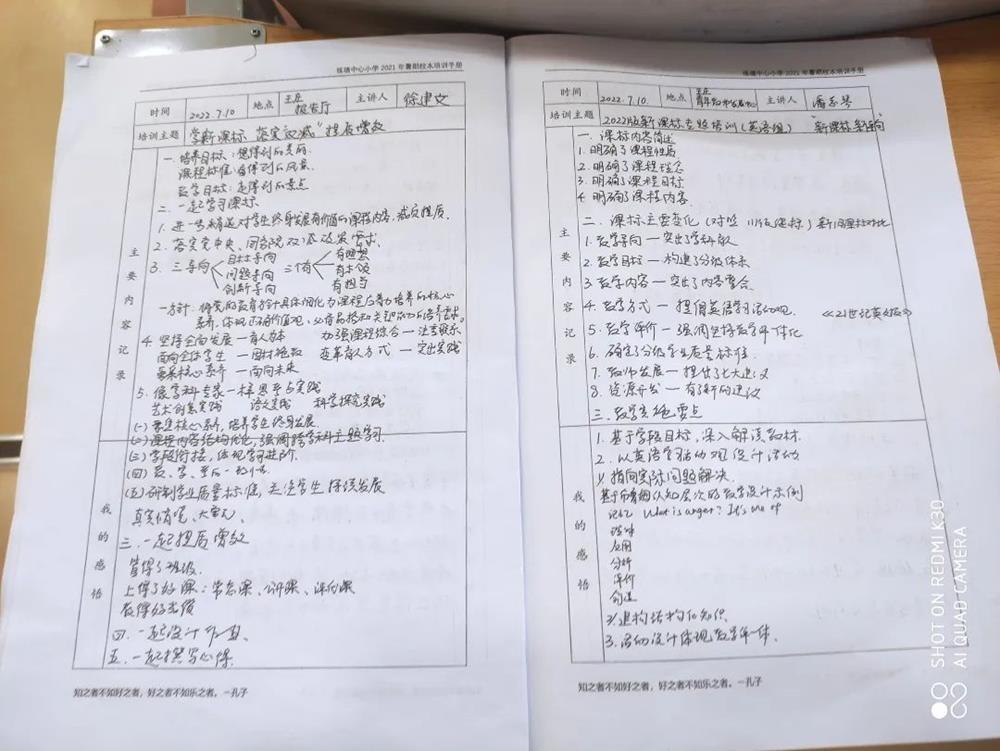 练塘中心小学 2021 年暑期校本培训手册
时间 2022.7.10 地点 王庄 报告厅 主讲人 徐建文
培训主题 学新课标 落实"双减" 提质增效
一. 培养目标：想得到的美丽.
课程标准：看得到的风景.
教学目标：走得到的景点
二. 一起学习课标.
1. 进一步精选对学生终身发展有价值的课程内容，减负提质.
2. 落实党中央、国务院双减政策要求.
3. 三导向 目标导向 问题导向 创新导向 三个有 有理想 有本领 有担当
一方针：将党的教育方针具体细化为课程应着力培养的核心
素养，体现正确价值观、必备品格和关键能力的培养要求.
4. 坚持全面发展 — 育人为本 加强课程综合 — 注重联系
面向全体学生 — 因材施教 变革育人方式 — 突出实践
聚焦核心素养 — 面向未来
5. 像学科专家一样思考与实践
艺术创意实践 语文实践 科学探究实践
(一) 聚焦核心素养，培养学生终身发展.
(二) 课程内容结构优化，强调跨学科主题学习.
(三) 学段衔接，体现学习进阶.
(四) 教、学、评一致性.
(五) 研制学业质量标准，关注学生持续发展
真实情境、大单元、
三. 一起提质增效
管得了班级.
上得了好课：常态课、公开课、
四. 一起设计
五. 一起撰写心得.
主要内容记录
我的感悟
知之者不如好之者，好之者不如乐之者。—孔子
练塘中心小学 2021 年暑期校本培训手册
时间 2022.7.10. 地点 王庄 主讲人 潘
培训主题 2022版新课标专题培训（英语组） 新课标 新
一. 课标内容简述
1. 明确了课程性质
2. 明确了课程理念
3. 明确了课程目标
4. 明确了课程内容.
二. 课标主要变化（对照 11版课标）新旧课标对比
1. 教学导向 — 突出了学科育人
2. 教学目标 — 构建了分级体系
3. 教学内容 — 突出了内容整合.
4. 教学方式 — 提倡英语学习活动观. 《21世纪英文报》
5. 教学评价 — 强调坚持教学评一体化
6. 确定了分级学业质量标准.
7. 教师发展 — 提出了七大建议
8. 资源开发 — 有了新的建议
三. 教学实施要点
1. 基于学段目标，深入解读教材.
2. 以英语学习活动观设计活动
1) 指向实际问题解决.
基于布鲁姆认知层次的教学设计示例
What is anger? It's one of
理解
应用
分析
评价
创造
2) 建构结构化知识.
3. 活动设计体现教学评一体.
主要内容记录
我的感悟
知之者不如好之者，好之者不如乐之者。—孔子
SHOT ON REDMI K30
AI QUAD CAMERA